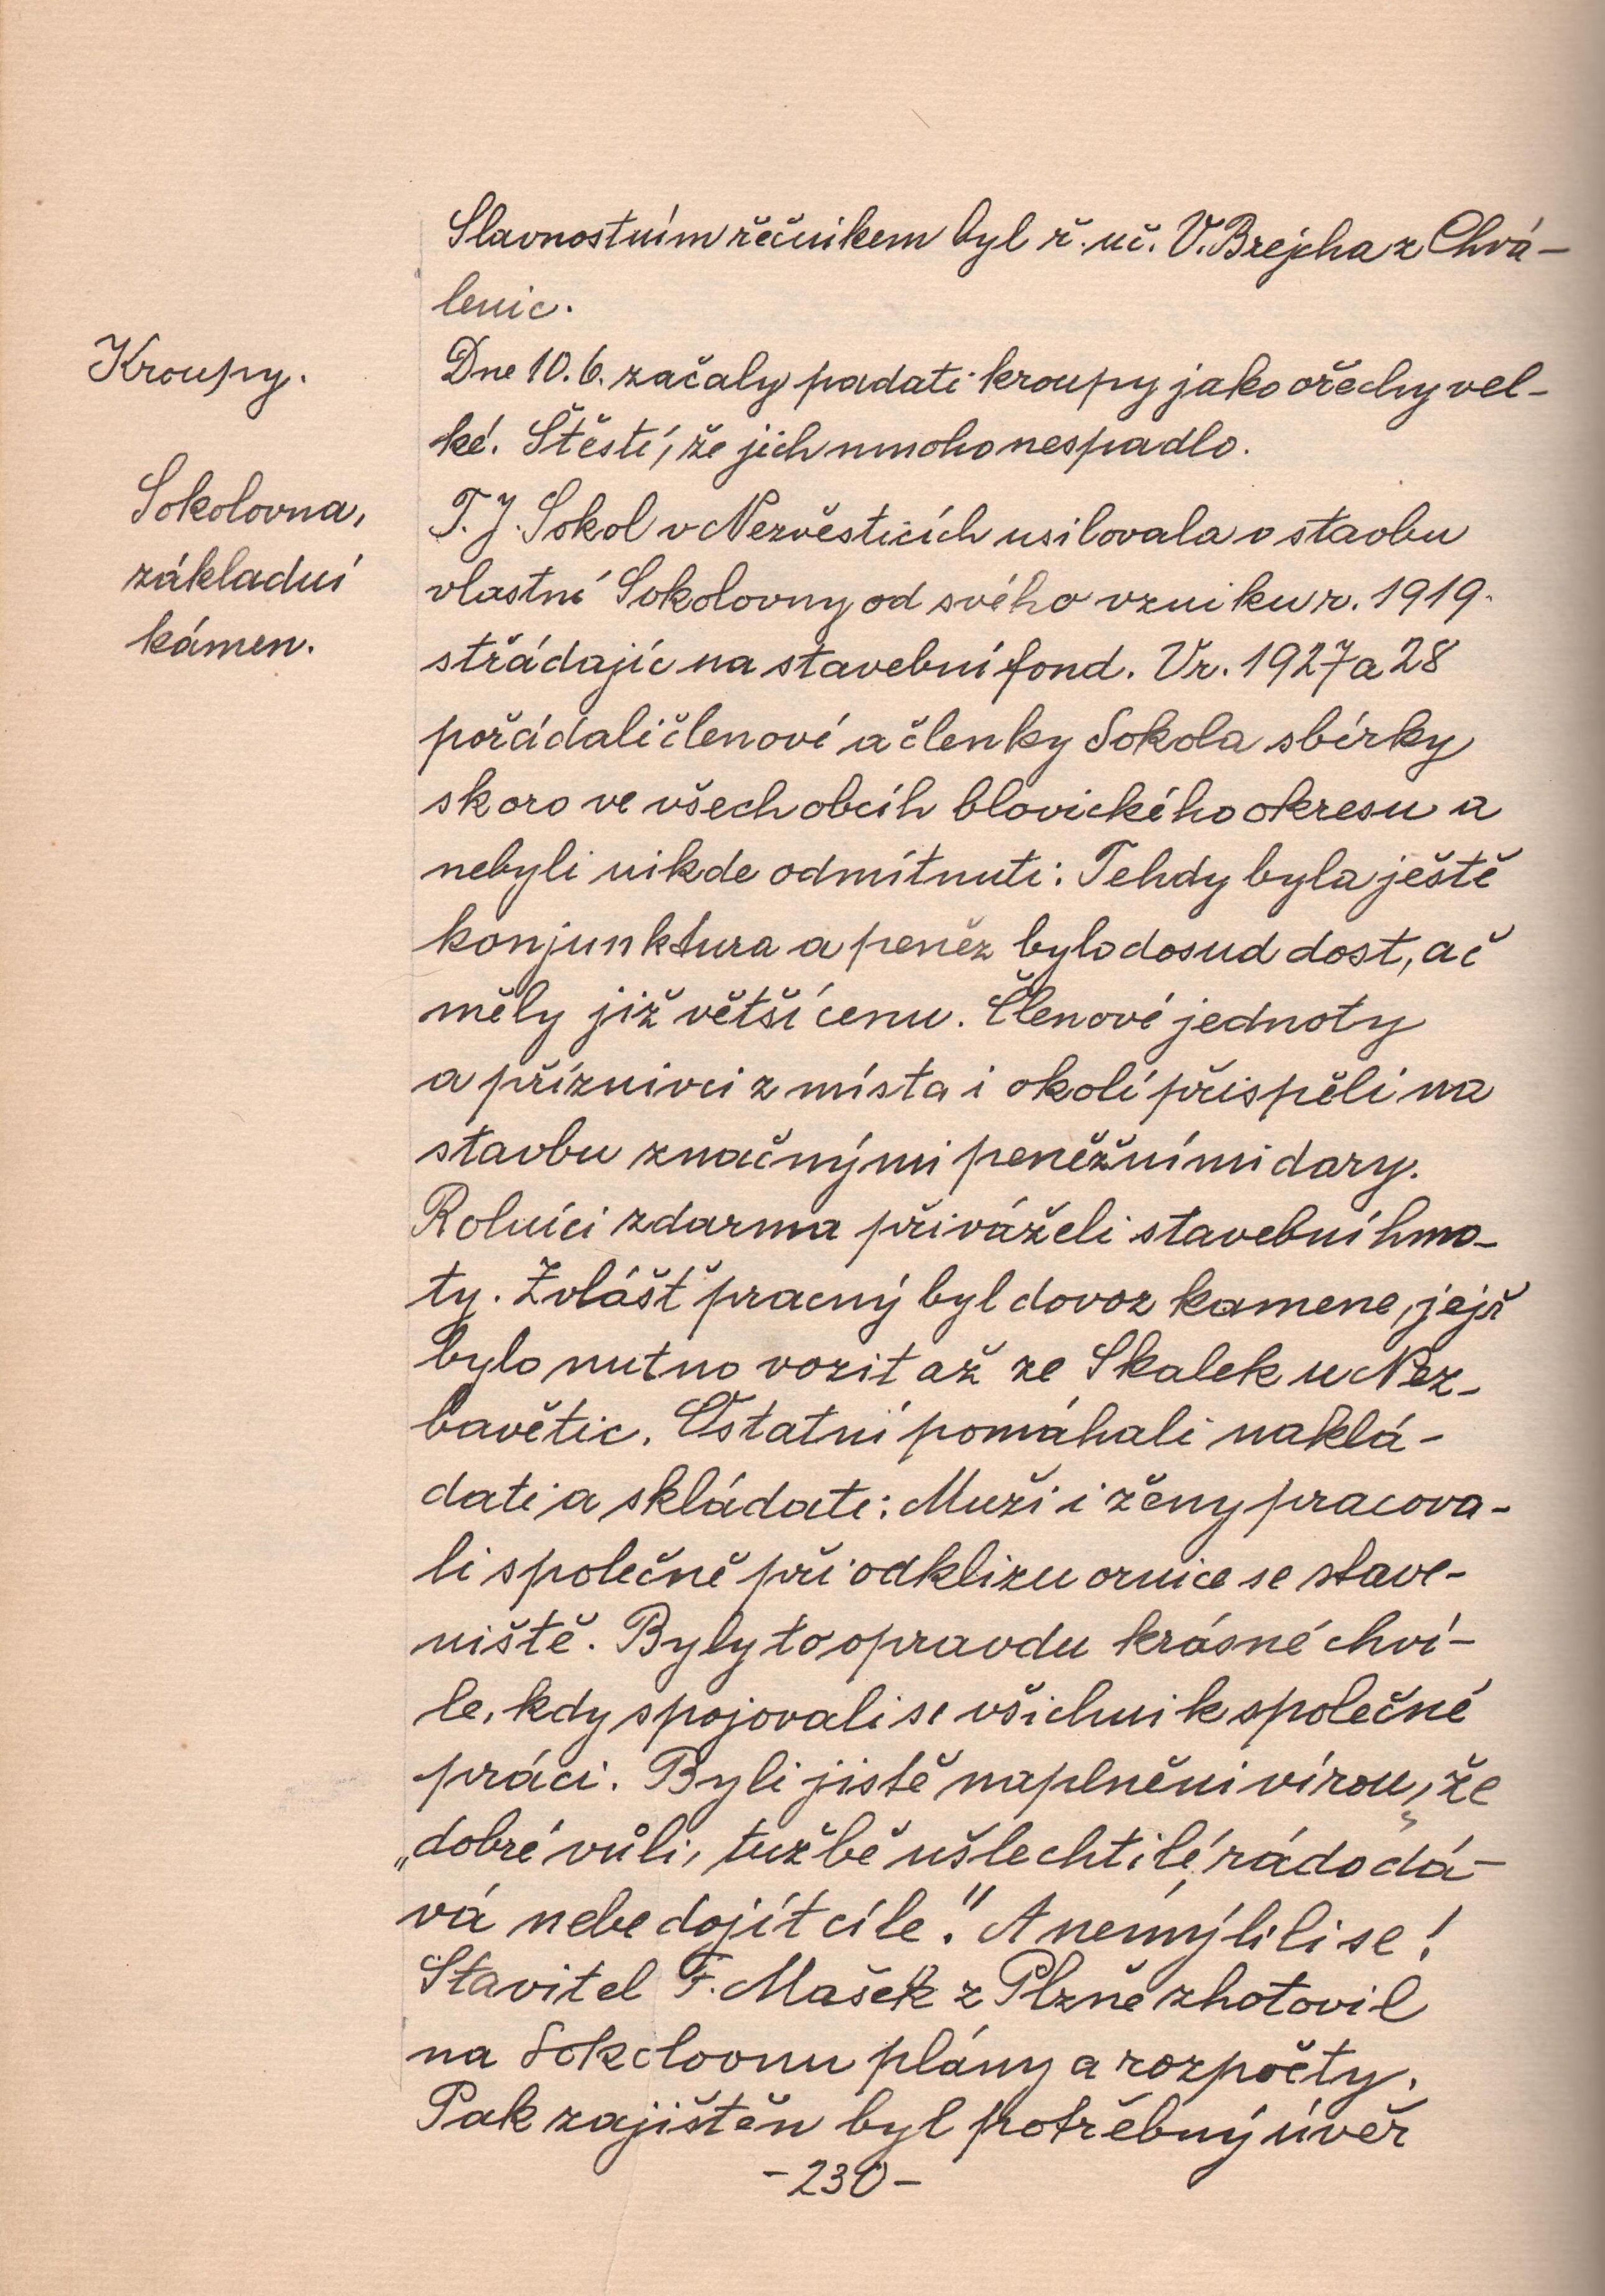 Slavnostním řečníkem byl ř. uč. V. Brejcha z Chvá-
lenic.
Kroupy.
Dne 10. 6. začaly padati kroupy jako ořechy vel-
ké. Štěstí, že jich mnoho nespadlo.
Sokolovna,
základní
kámen.
T. J. Sokol v Nezvěsticích usilovala o stavbu
vlastní Sokolovny od svého vzniku r. 1919
střádajíc na stavební fond. V r. 1927 a 28
pořádali členové a členky Sokola sbírky
skoro ve všech obcíh blovického okresu a
nebyli nikde odmítnuti: Tehdy byla ještě
konjunktura a peněz bylo dosud dost, ač
měly již větší cenu. Členové jednoty
a příznivci z místa i okolí přispěli na
stavbu značnými peněžními dary.
Rolníci zdarma přiváželi stavební hmo-
ty. Zvlášť pracný byl dovoz kamene, jejž
bylo nutno vozit až ze Skalek u Nez-
bavětic. Ostatní pomáhali naklá-
dati a skládati: Muži i ženy pracova-
li společně při odklizu ornice se stave-
niště. Byly to opravdu krásné chví-
le, kdy spojovali se všichni k společné
práci. Byli jistě naplněni vírou, že
„dobré vůli, tužbě ušlechtilé, rádo dá-
vá nebe dojít cíle." A nemýlili se!
Stavitel F. Mašek z Plzně zhotovil
na Sokolovnu plány a rozpočty.
Pak zajištěn byl potřebný úvěr
-230-